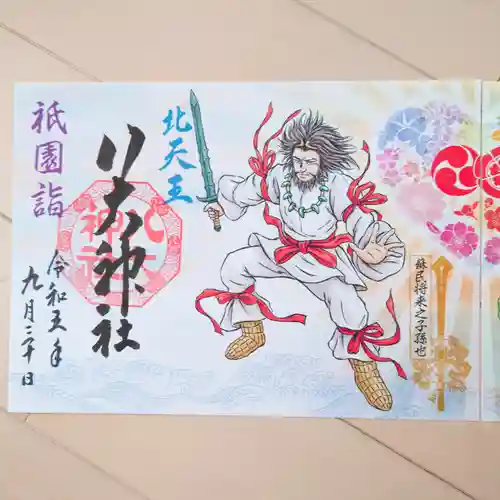 北天王
八大神社
祇園詣
令和五年
九月三十日
蘇民将来之子孫也